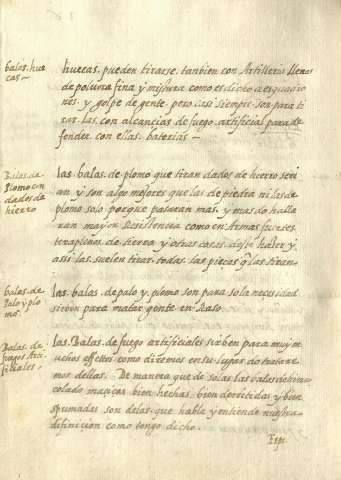 balas. hue
cas —
huecas. pueden tirarse. tanbien con Artilleria llenas
de polvora fina y mistura como es dicho a esquadro
nes. y golpe de gente. pero casi siempre son para ti
rar las con alcancias de fuego artificial para de
fender con ellas. baterias —
Balas. de
Plomo con
dados de
hierro
las. balas. de plomo que tiran dados de hierro seri
an y son algo mejores que las de piedra ni las de
plomo solo porque pasaran mas. y mas do halla
ran mayor Resistencia como en Armas fuertes
terraplenos de tierra y otras cosas. deve haber y.
assi las. suelen tirar. todas. las pieças q̃ las tiran.
balas. de.
Palo y plo
mo.
las. balas. de palo y plomo son para sola necesidad
sirven para matar gente en Raso
Balas. de
fuegos Arti
ficiales.
las Balas. de fuego artificiales sirben para muy m
uchos effectos como diremos en su lugar do tratare
mos dellas. De manera que de solas las balas de hierro
colado maciças bien hechas. bien derretidas y bien
espumadas son de las. que habla y entiende nuestra
difinicion como tengo dicho.